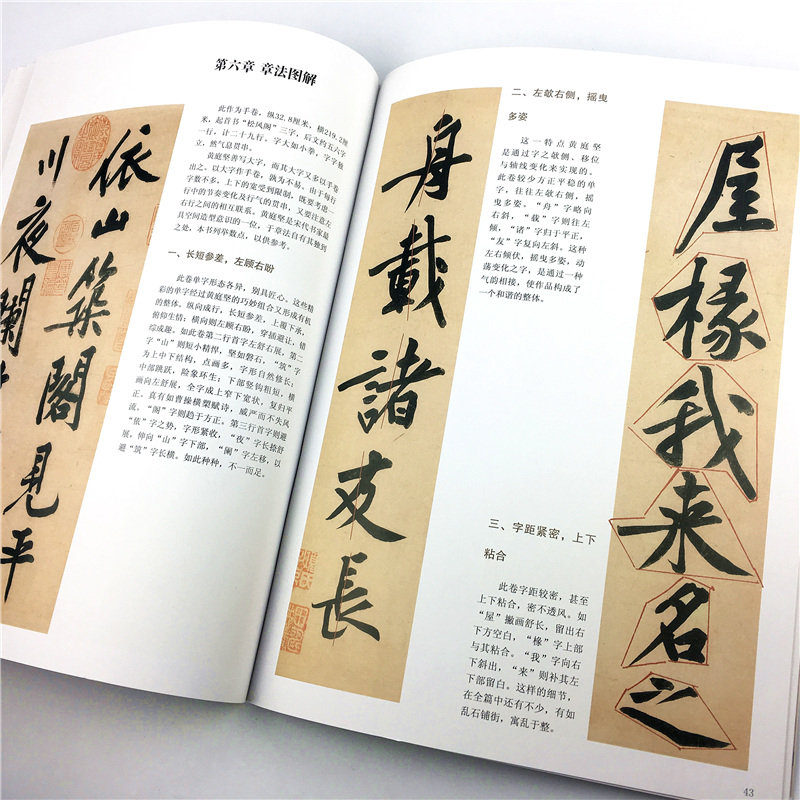 第六章 章法图解
此作为手卷，纵32.8厘米，横219.2厘
米，起首书“松风阁”三字，后文约五六字
一行，计二十九行。字大如小拳，字字独
立，然气息贯串。
黄庭坚善写大字，而其大字又多以手卷
出之。以大字作手卷，孰为不易，由于每行
字数不多，上下的宽受到限制，既要考虑一
行中的节奏变化及行气的贯串，又要注意左
右行之间的相互联系。黄庭坚是宋代书家最
具空间造型意识的一位，于章法自有其独到
之处，本书列举数点，以供参考。
一、长短参差，左顾右盼
此卷单字形态各异，别具匠心，这些精
彩的单字经过黄庭坚的巧妙组合又形成有机
的整体。纵向成行，长短参差，上覆下承，
俯仰生情；横向则左顾右盼，穿插避让，错
综成趣。如此卷第二行首字左舒右展，第二
字“山”则短小精悍，坚如磐石，“筑”字
为上中下结构，点画多，字形自然修长；
中部跳跃，险象环生；下部竖钩粗短，横
画向左舒展，全字成上窄下宽状，复归平
正，真有如曹操横槊赋诗，威严而不失风
流。“阁”字则趋于方正。第三行首字则避
“依”字之势，字形紧收，“夜”字长捺舒
展，伸向“山”字下部，“阑”字左移，以
避“筑”字长横。如此种种，不一而足。
依山築閣見平
川夜闌
二、左欹右侧，摇曳
多姿
这一特点黄庭坚
是通过字之欹侧、移位
与轴线变化来实现的。
此卷较少方正平稳的单
字，往往左欹右侧，摇
曳多姿。“舟”字略向
右斜，“载”字则往左
倾，“诸”字归于平正，
“友”字复向左斜。这种
左右倾伏，摇曳多姿，动
荡变化之字，是通过一种
气韵相接，使作品构成了
一个和谐的整体。
三、字距紧密，上下
粘合
此卷字距较密，甚至
上下粘合，密不透风。如
“屋”撇画舒长，留出右
下方空白，“椽”字上部
与其粘合。“我”字向右
下斜出，“来”则补其左
下部留白。这样的细节，
在全篇中还有不少，有如
乱石铺街，寓乱于整。
屋椽我来名之
舟載諸友長
43